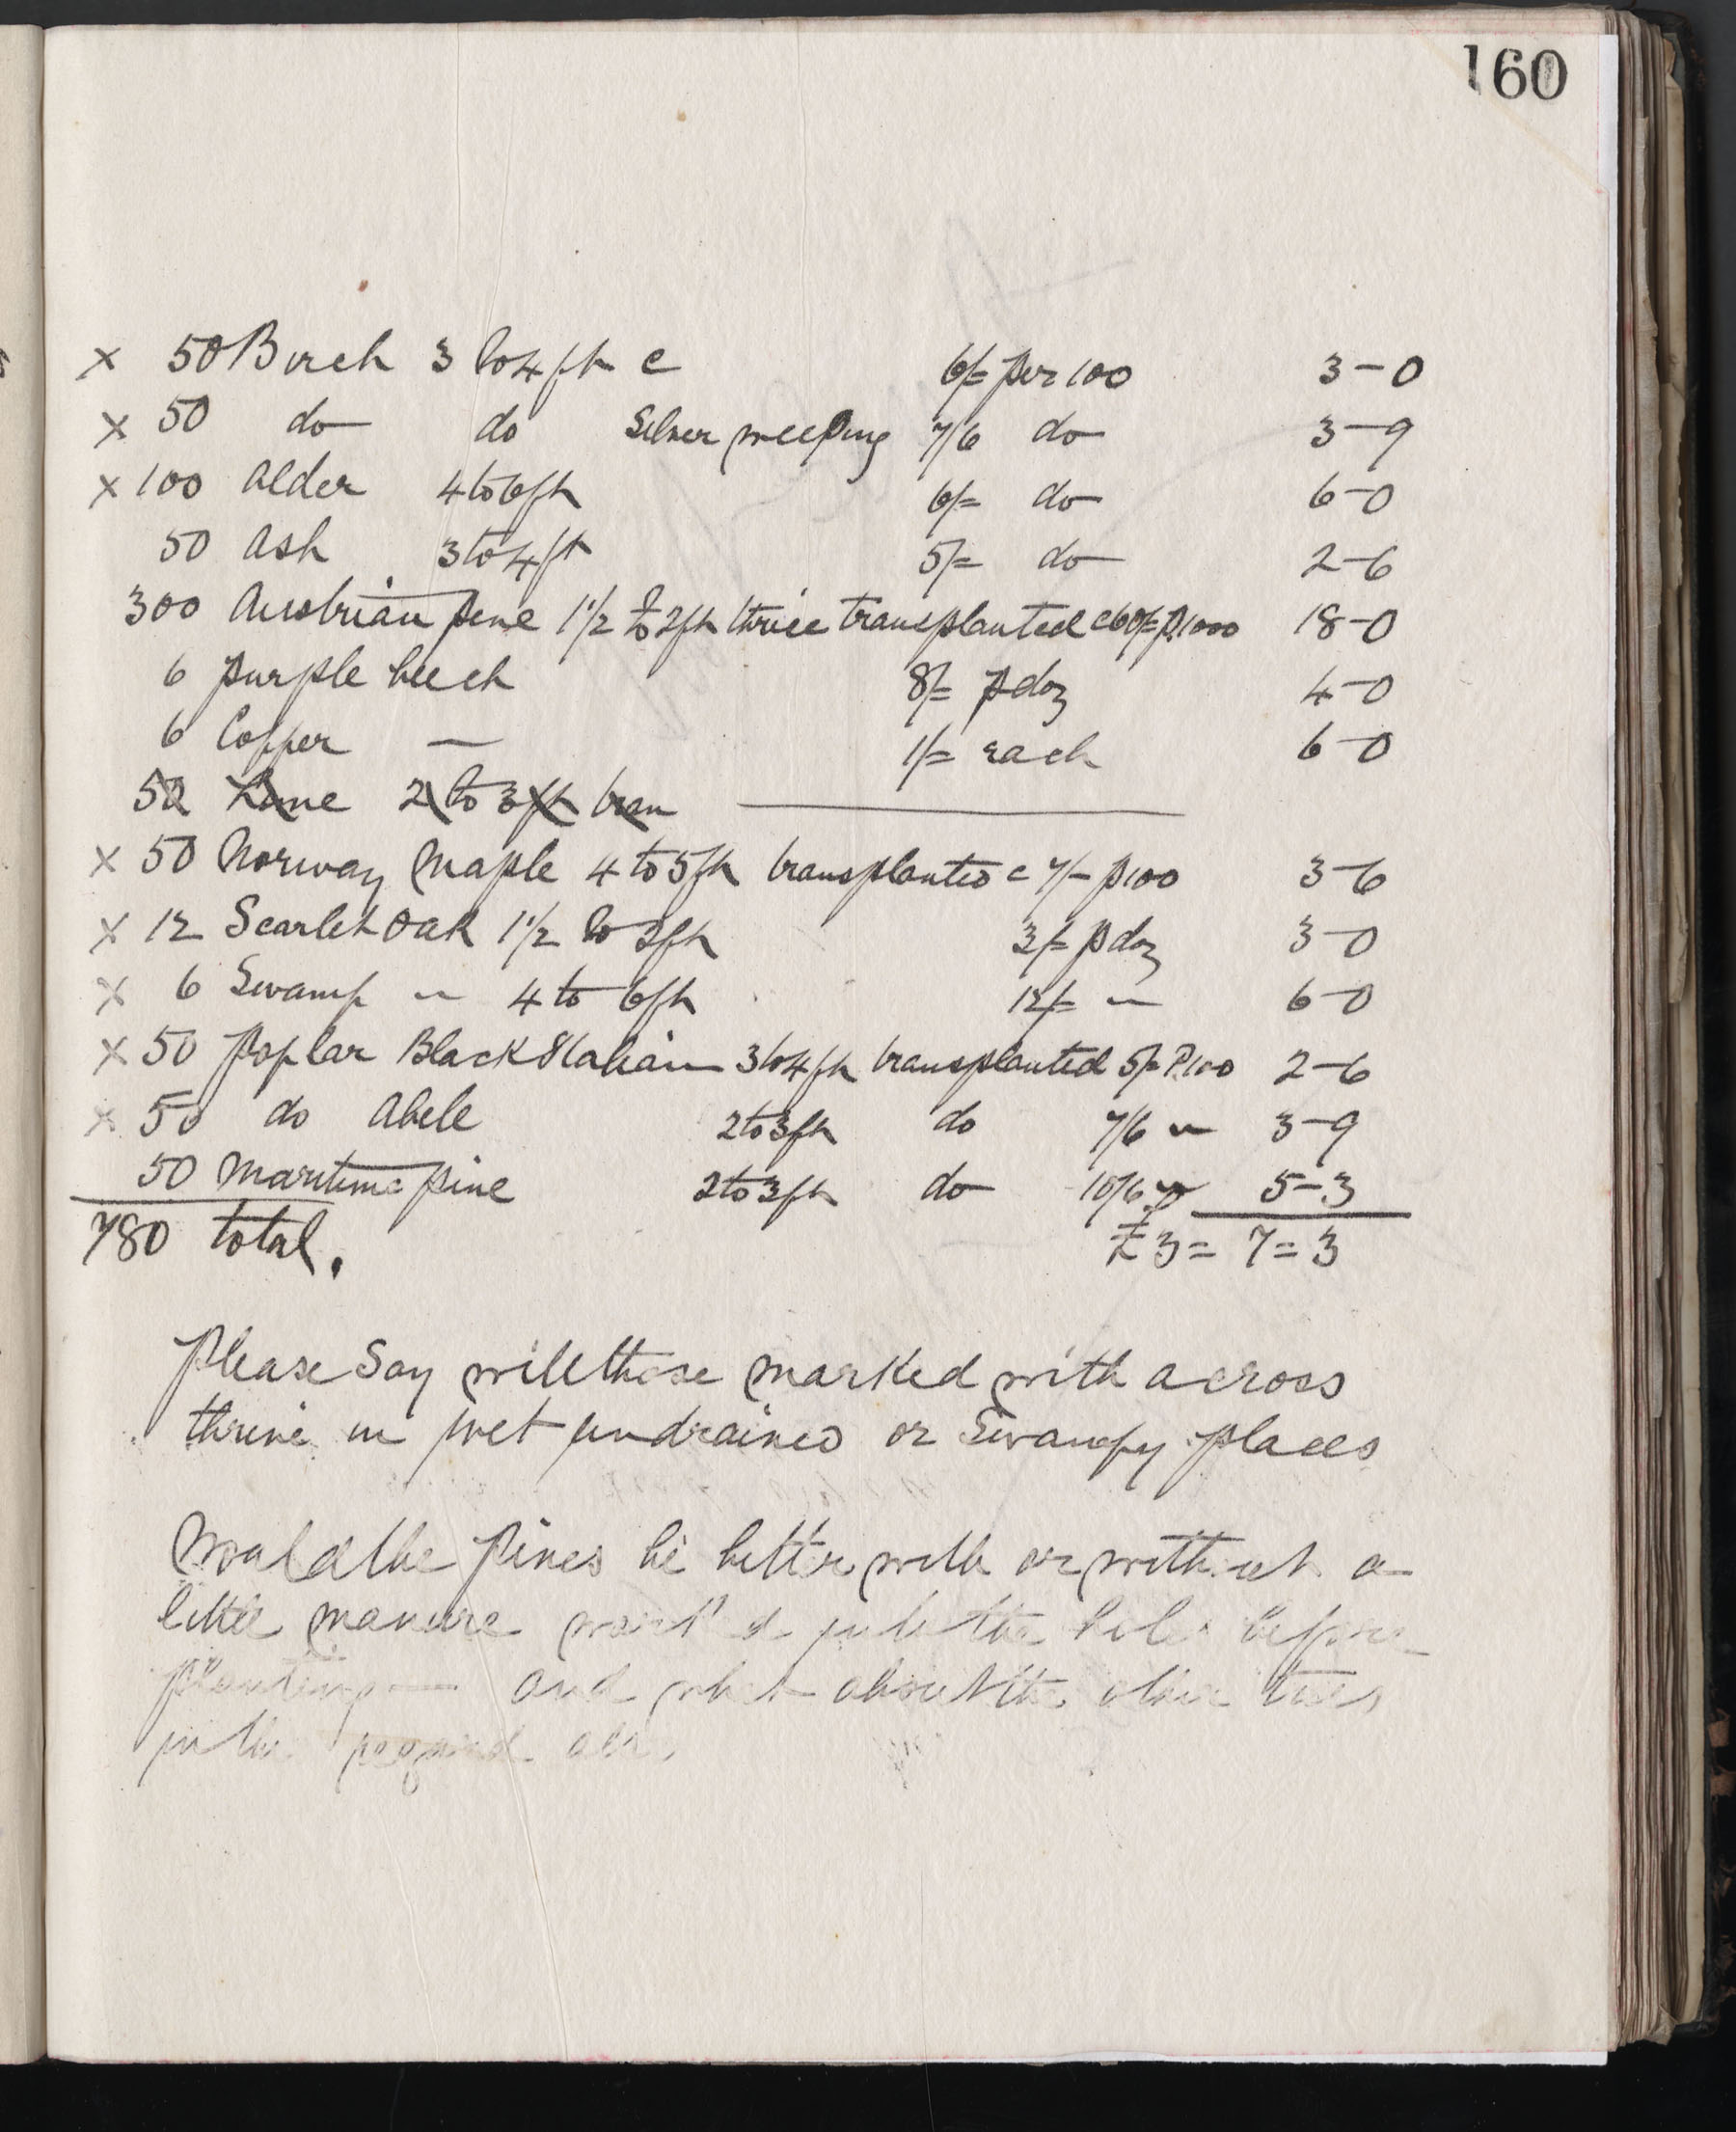 160
x 50 Birch 3 to 4 ft @ 6/= per 100 3-0
x 50 do do Silver weeping 7/6 do 3-9
x 100 Alder 4 to 6 ft 6/= do 6-0
50 Ash 3 to 4 ft 5/= do 2-6
300 Austrian pine 1 1/2 to 2 ft thrice transplanted @ 60/= p 1000 18-0
6 purple beech 8/= p doz 4-0
6 Copper — 1/= each 6-0
50 Lime 2 to 3 ft tran
x 50 Norway Maple 4 to 5 ft transplanted @ 7/- p 100 3-6
x 12 Scarlet Oak 1 1/2 to 2 ft 3/= p doz 3-0
x 6 Swamp — 4 to 6 ft 12/= — 6-0
x 50 poplar Black Italian 3 to 4 ft transplanted 5/= P. 100 2-6
x 50 do Abele 2 to 3 ft do 7/6 — 3-9
50 Maritime pine 2 to 3 ft do 10/6 — 5-3
780 total. £3=7=3
Please Say will those marked with a cross
thrive in wet undrained or Swampy places
Would the pines be better with or without a
little manure into the hole before
planting — and what about the other trees
in the regard